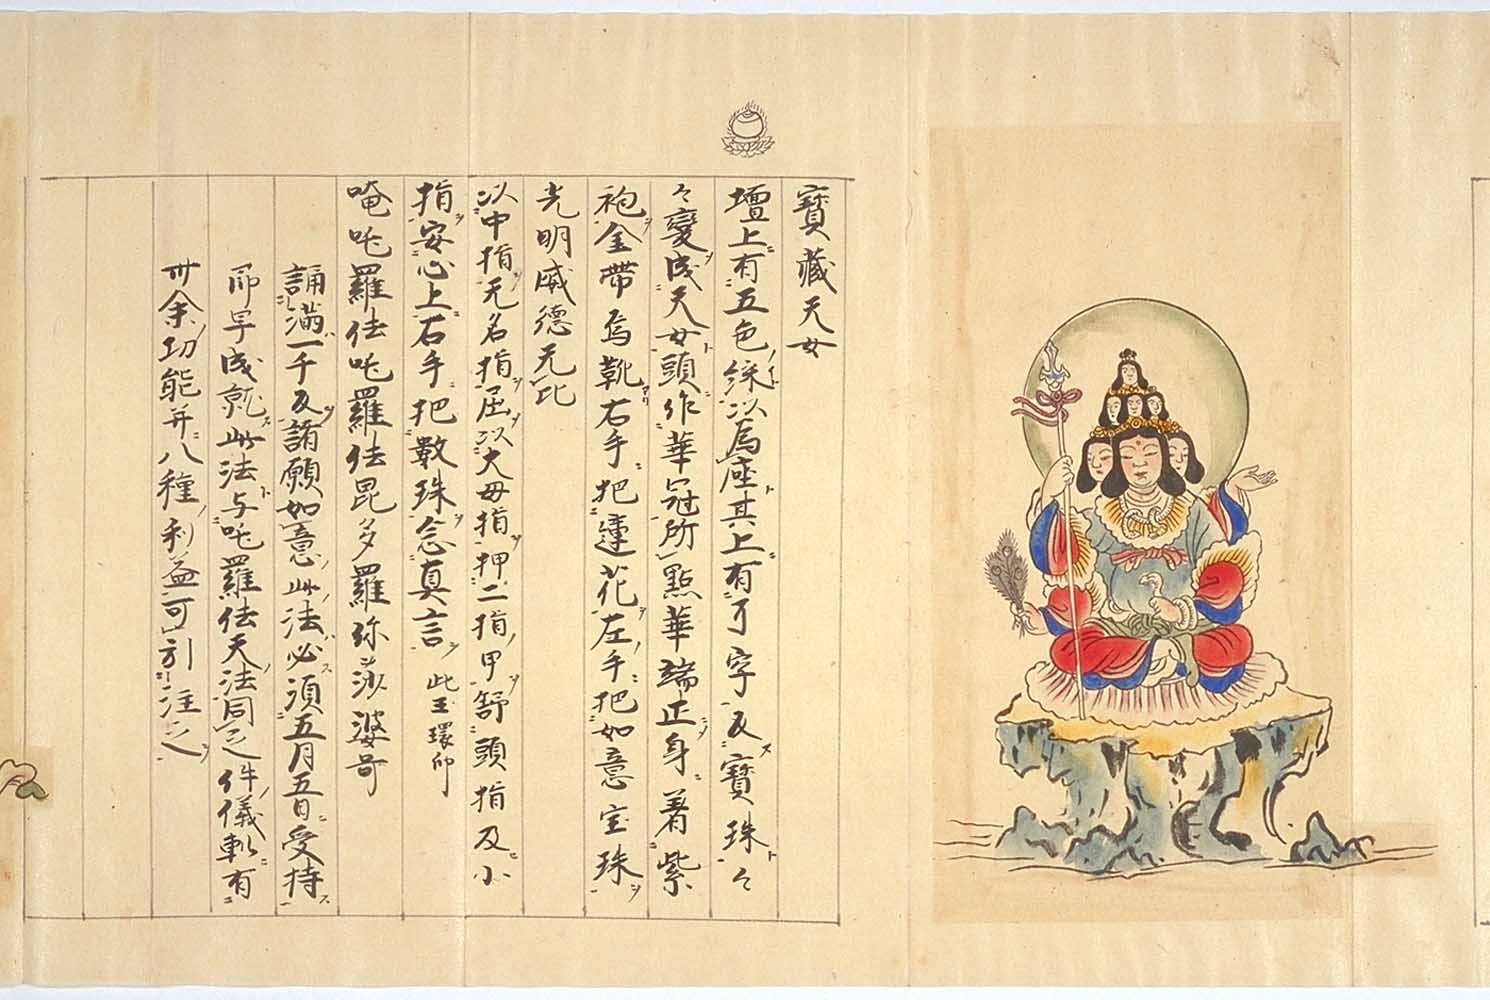 寶藏天女
壇上有五色綵以為座其上有 字及寶珠々
々變成天女頭作華冠所點華端正身著紫
袍金帶烏靴右手把蓮花左手把如意宝珠
光明威德无比
以中指无名指屈以大母指押二指甲舒頭指及小
指安心上右手把數珠念真言 此玉環印
唵吒羅佉吒羅佉昆多羅弥莎婆可
誦滿一千反諸願如意此法必須五月五日受持
即早成就此法与吒羅佉天法同之件儀軌有
卅余功能并八種利益可引注之